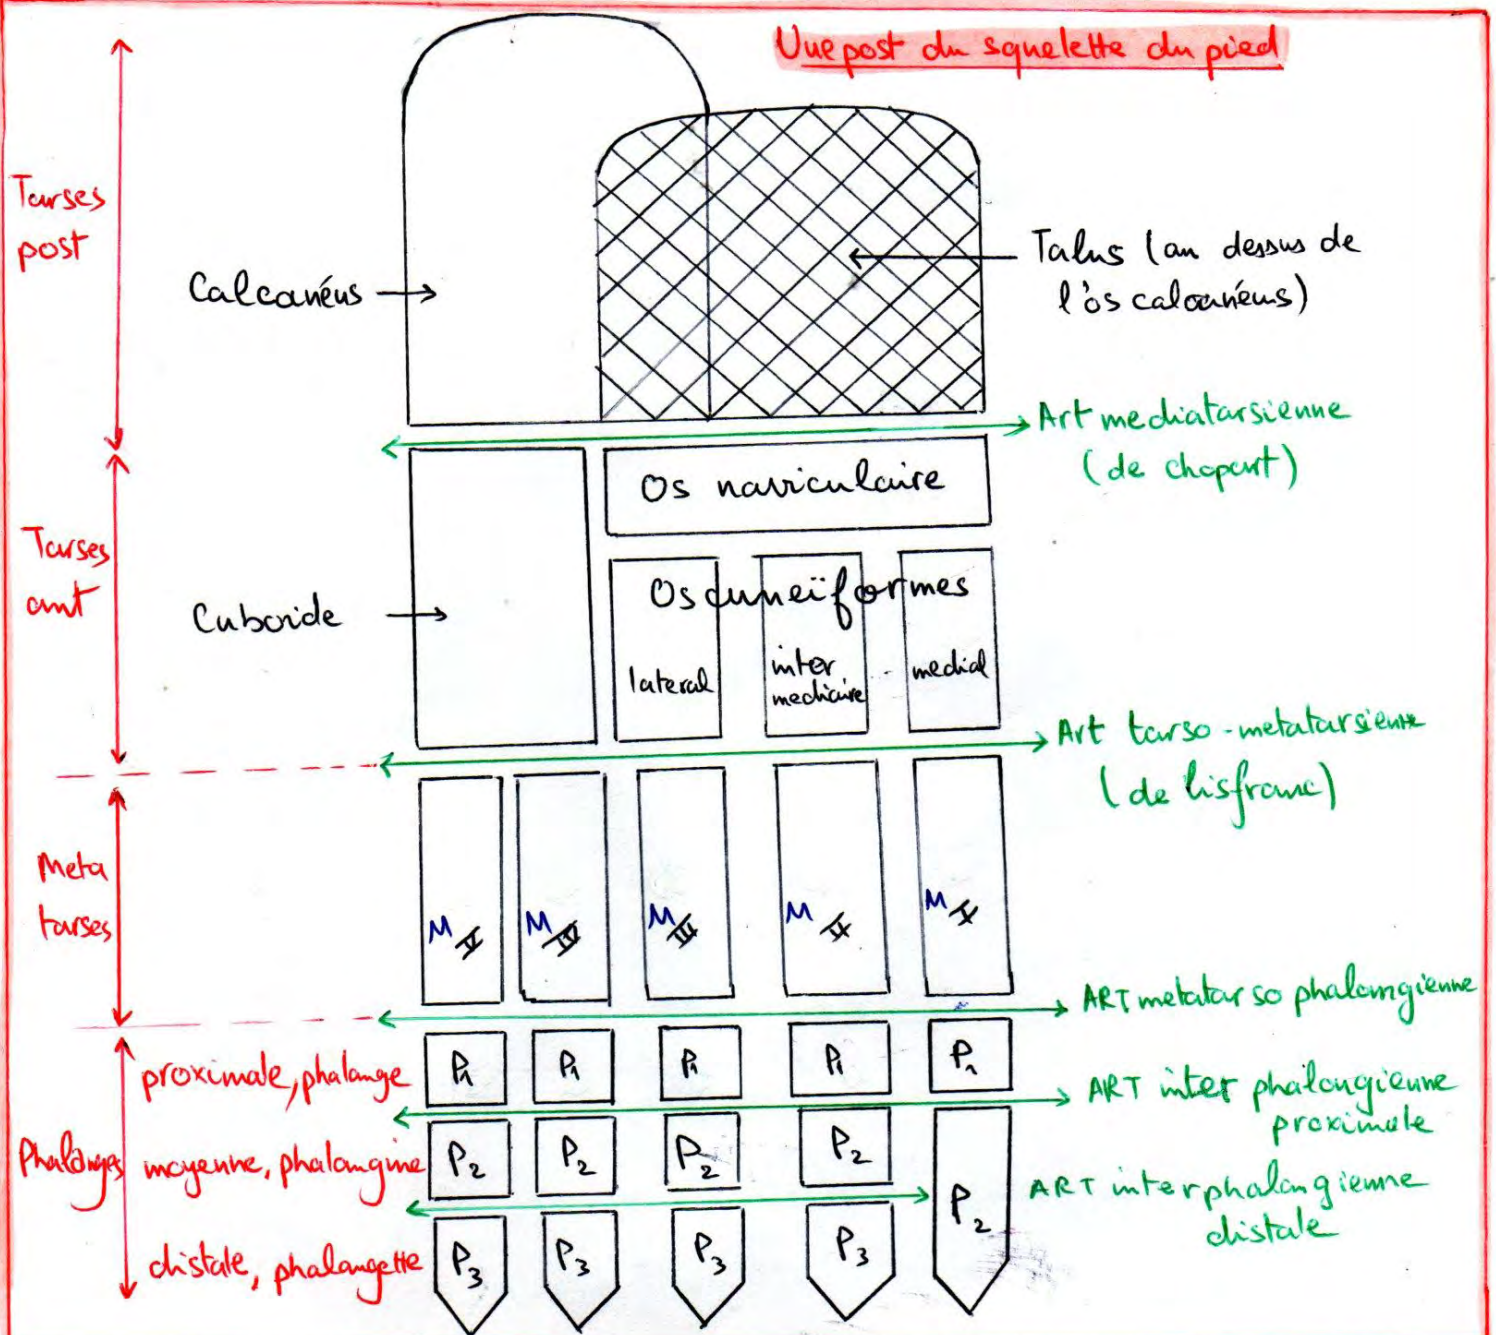 Vue post du squelette du pied
Tarses
post
Calcanéus
Talus (au dessus de
l'os calcanéus)
Art mediatarsienne
(de chopart)
Os naviculaire
Tarses
ant
Cuboide
Os cuneïformes
lateral
inter
mediaire
medial
Art tarso-metatarsienne
(de lisfranc)
Meta
tarses
M V
M IV
M III
M II
M I
ART metatarso phalangienne
proximale, phalange
P1
P1
P1
P1
P1
ART inter phalangienne
proximale
Phalanges
moyenne, phalangine
P2
P2
P2
P2
P2
ART interphalangienne
distale
distale, phalangette
P3
P3
P3
P3